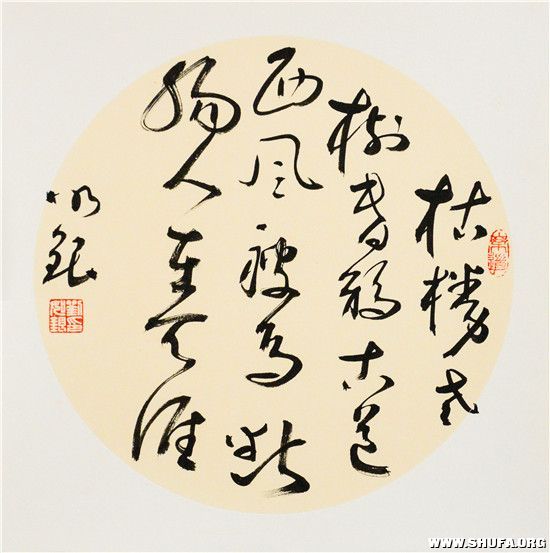 枯藤老
树昏鸦古道
西风瘦马断
肠人在天涯
WWW.SHUFA.ORG